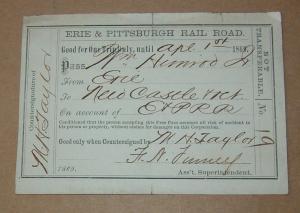 ERIE & PITTSBURGH RAIL ROAD.
Good for One Trip only, until Apl 1st 1869.
Pass Wm Himrod Jr
From Erie
To New Castle & Ret.
On account of E & P R R
Conditioned that the person accepting this Free Pass assumes all risk of accident to
his person or property, without claims for damages on this Corporation.
Good only when Countersigned by W. H. Taylor
1869. Ass't. Superintendent.
Countersigned
W H Taylor
NOT
TRANSFERABLE.
No.